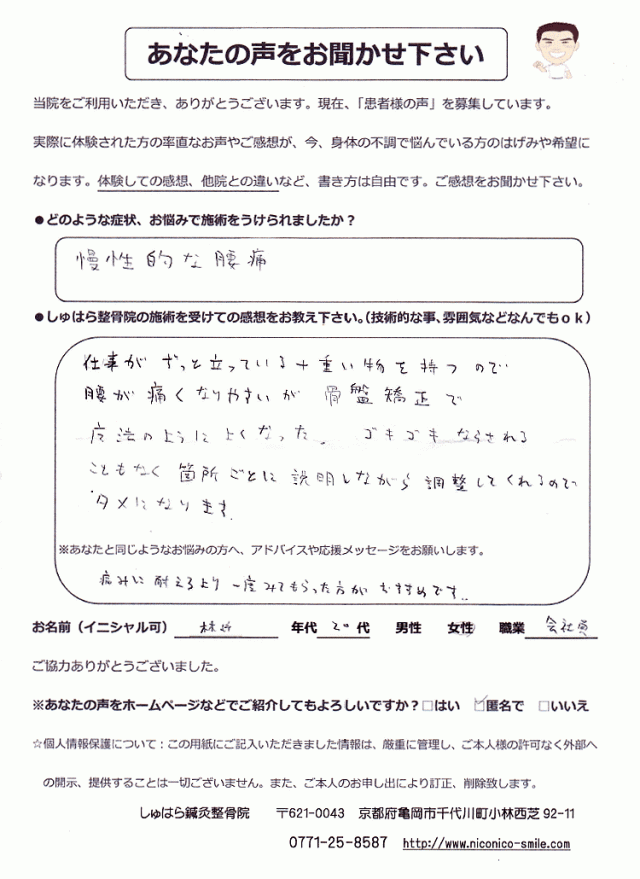 あなたの声をお聞かせ下さい
当院をご利用いただき、ありがとうございます。現在、「患者様の声」を募集しています。
実際に体験された方の率直なお声やご感想が、今、身体の不調で悩んでいる方のはげみや希望に
なります。体験しての感想、他院との違いなど、書き方は自由です。ご感想をお聞かせ下さい。
●どのような症状、お悩みで施術をうけられましたか？
慢性的な腰痛
●しゅはら整骨院の施術を受けての感想をお教え下さい。（技術的な事、雰囲気などなんでもｏｋ）
仕事がずっと立っている＋重い物を持つので
腰が痛くなりやすいが骨盤矯正で
魔法のようによくなった。ゴキゴキならされる
こともなく箇所ごとに説明しながら調整してくれるので
タメになります。
※あなたと同じようなお悩みの方へ、アドバイスや応援メッセージをお願いします。
痛みに耐えるより一度みてもらった方がおすすめです。
お名前（イニシャル可） 年代 20代 男性 女性 職業 会社員
ご協力ありがとうございました。
※あなたの声をホームページなどでご紹介してもよろしいですか？□はい ☑匿名で □いいえ
☆個人情報保護について：この用紙にご記入いただきました情報は、厳重に管理し、ご本人様の許可なく外部へ
の開示、提供することは一切ございません。また、ご本人のお申し出により訂正、削除致します。
しゅはら鍼灸整骨院 〒621-0043 京都府亀岡市千代川町小林西芝92-11
0771-25-8587 http://www.niconico-smile.com/